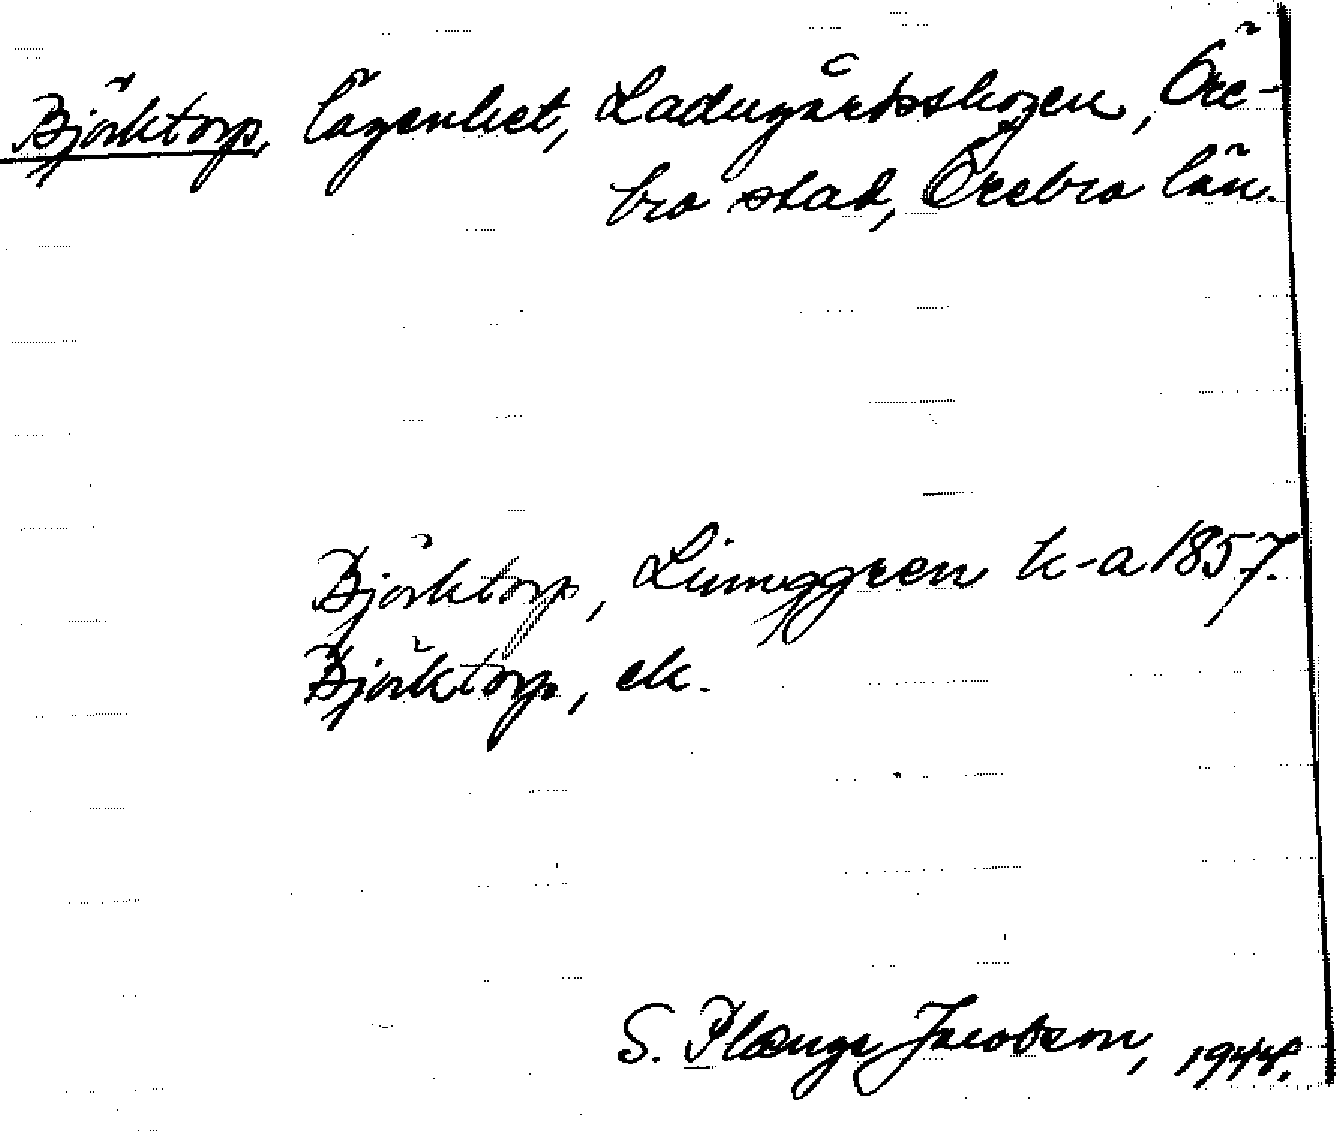 Björktorp, lägenhet, Ladugårdsskogen, Öre-
bro stad, Örebro län.
Björktorp, Ljunggren k-a 1857.
Björktorp, ek.
S. Plænge Jacobson, 1944.